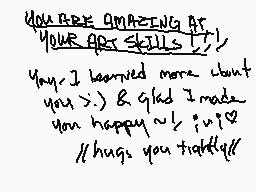 YOU ARE AMAZING AT
YOUR ART SKILLS !!!
Yay, I learned more about
you >:) & glad I made
you happy ~! ;u;♡
//hugs you tightly//